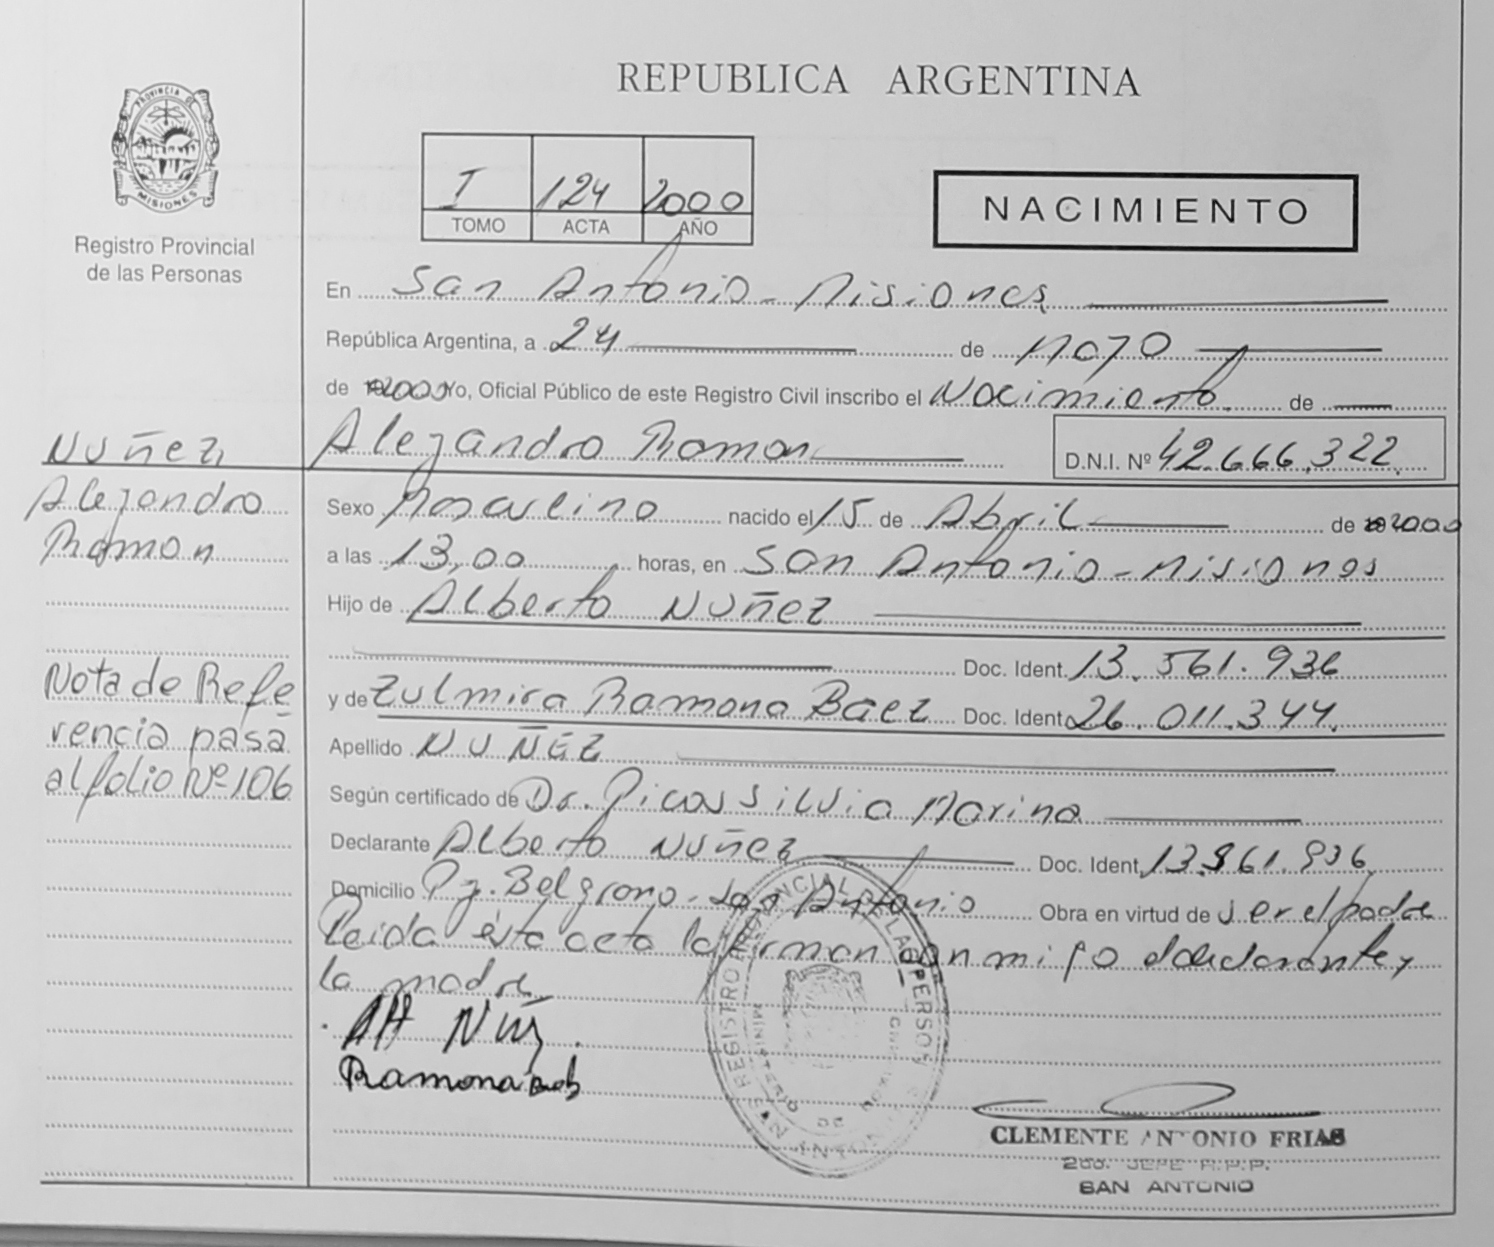 REPUBLICA ARGENTINA
PROVINCIA DE MISIONES
Registro Provincial
de las Personas
I 124 2000
TOMO ACTA AÑO
NACIMIENTO
En San Antonio - Misiones
República Argentina, a 24 de Mayo
de 2000 Yo, Oficial Público de este Registro Civil inscribo el Nacimiento de
Nuñez Alejandro Ramon D.N.I. Nº 42.666.322
Alejandro Sexo Masculino nacido el 15 de Abril de 2000
Ramon a las 13,00 horas, en San Antonio - Misiones
Hijo de Alberto Nuñez
Doc. Ident. 13.561.936
y de Zulmira Ramona Baez Doc. Ident. 26.011.344
Nota de Refe
rencia pasa
al folio Nº 106
Apellido NUÑEZ
Según certificado de Dr. Picas Silvia Marina
Declarante Alberto Nuñez Doc. Ident. 13.561.936
Domicilio Pj. Belgrano - San Antonio Obra en virtud de ser el padre
Leida ésta acta la firman conmigo el declarante y
la madre
Alt Nuz
Ramona
REGISTRO PROVINCIAL DE LAS PERSONAS
MINISTERIO DE
SAN ANTONIO
CLEMENTE ANTONIO FRIAS
2do. JEFE R.P.P.
SAN ANTONIO